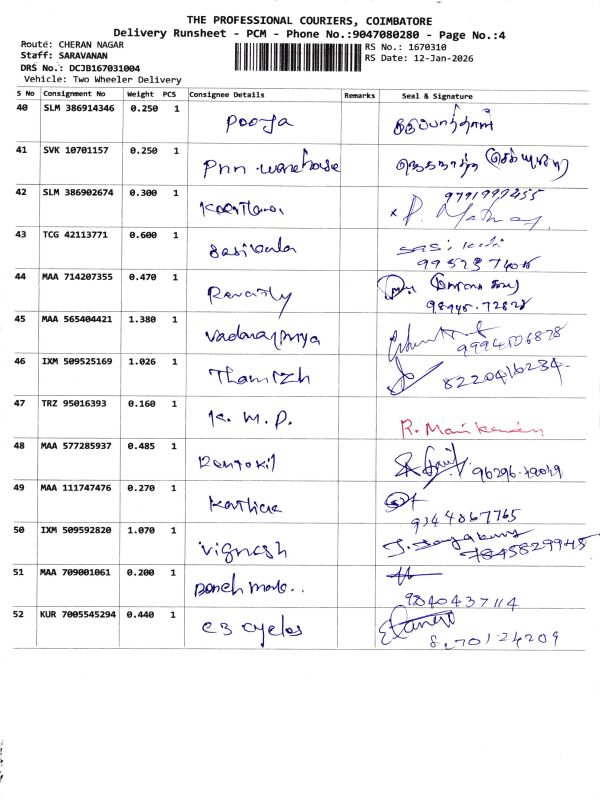 THE PROFESSIONAL COURIERS, COIMBATORE
Delivery Runsheet - PCM - Phone No.:9047080280 - Page No.:4
Route: CHERAN NAGAR
Staff: SARAVANAN
DRS No.: DCJB167031004
Vehicle: Two Wheeler Delivery
RS No.: 1670310
RS Date: 12-Jan-2026
S No Consignment No Weight PCS Consignee Details Remarks Seal & Signature
40 SLM 386914346 0.250 1 Pooja
41 SVK 10701157 0.250 1 Pnn warehouse
42 SLM 386902674 0.300 1 9791999455
43 TCG 42113771 0.600 1 Sasikala
44 MAA 714207355 0.470 1 Revathy
45 MAA 565404421 1.380 1 Vadanapriya 9994506878
46 IXM 509525169 1.026 1 Thamizh 8220416234
47 TRZ 95016393 0.160 1 K. M. P. R. Manikandan
48 MAA 577285937 0.485 1
49 MAA 111747476 0.270 1 9344067765
50 IXM 509592820 1.070 1 Vignesh 7845829945
51 MAA 709001061 0.200 1 9840437114
52 KUR 7005545294 0.440 1 C3 cycles 8270124209